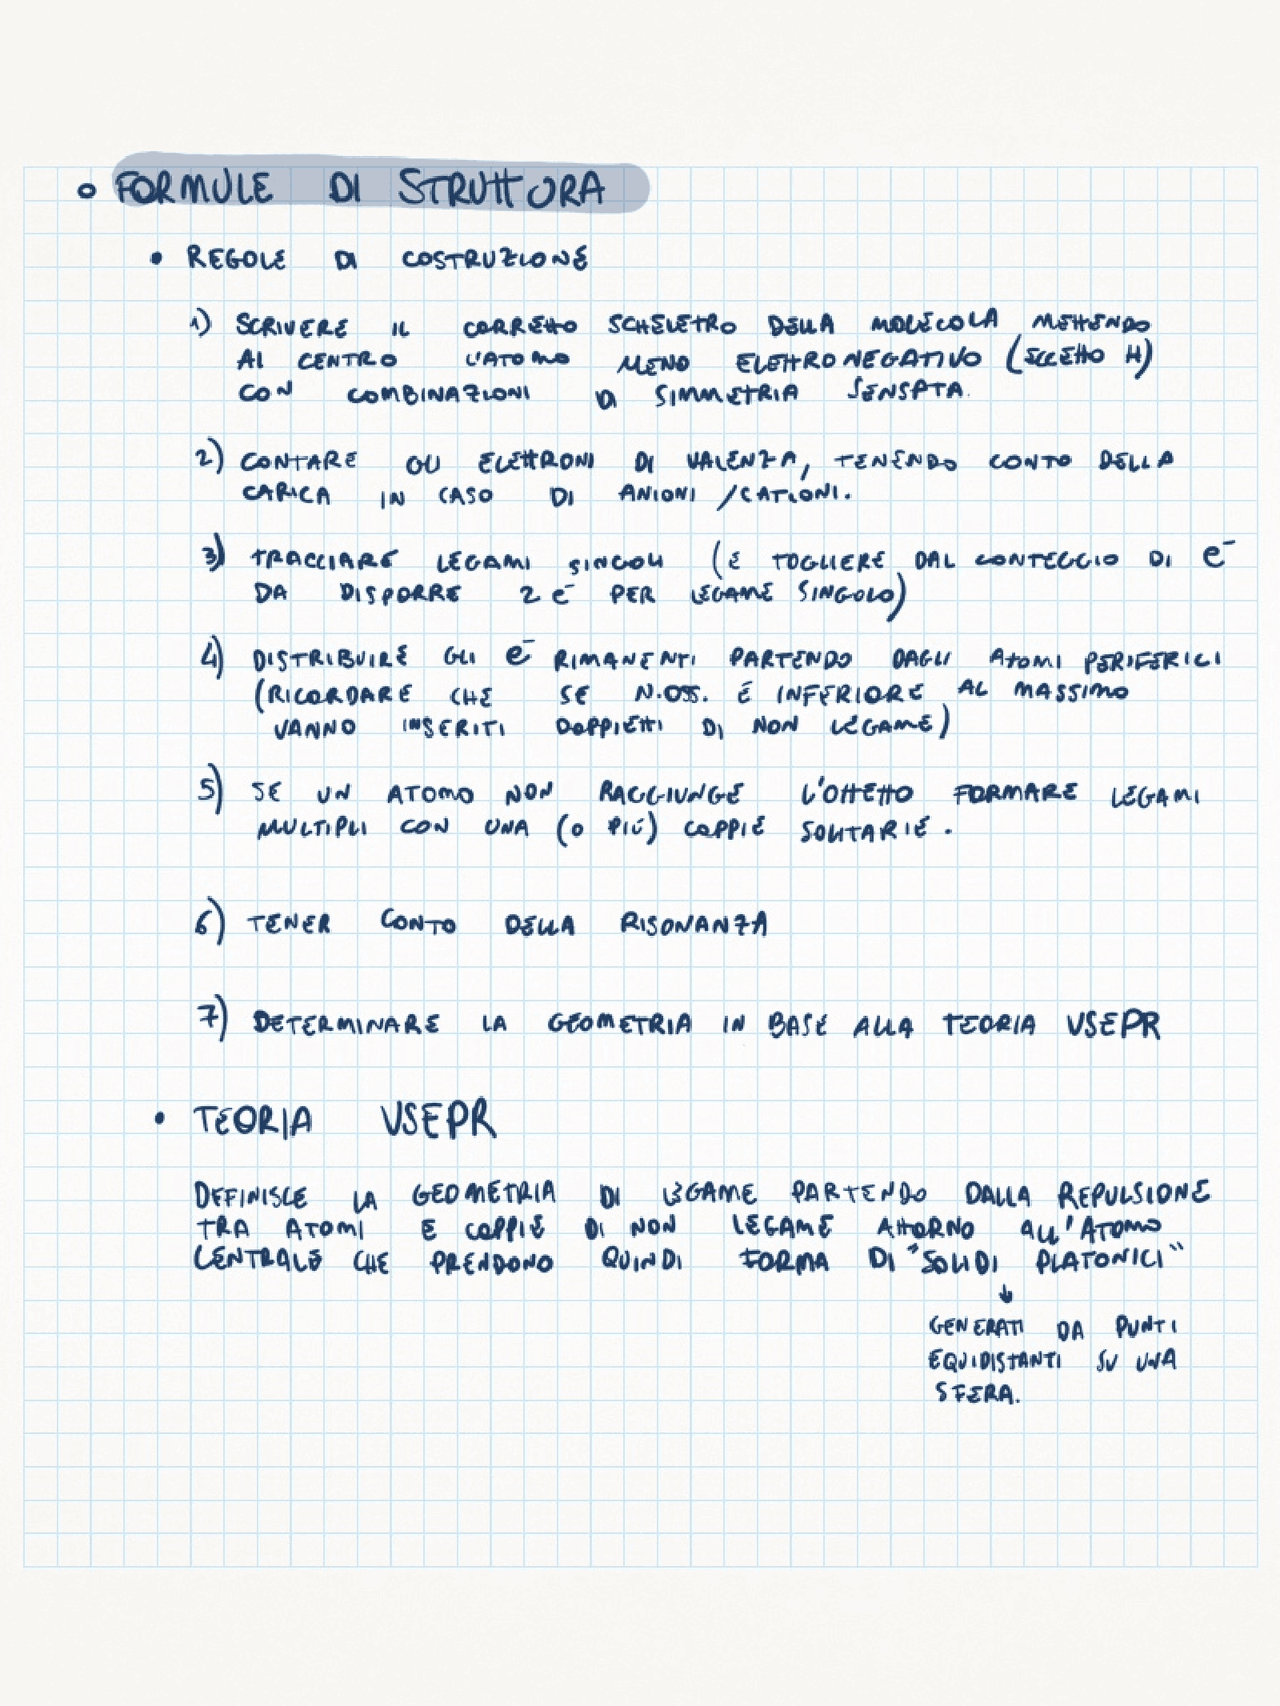 FORMULE DI STRUTTURA
• REGOLE DI COSTRUZIONE
1) SCRIVERE IL CORRETTO SCHELETRO DELLA MOLECOLA METTENDO
AL CENTRO L'ATOMO MENO ELETTRONEGATIVO (ECCETTO H)
CON COMBINAZIONI DI SIMMETRIA SENSATA.
2) CONTARE GLI ELETTRONI DI VALENZA, TENENDO CONTO DELLA
CARICA IN CASO DI ANIONI/CATIONI.
3) TRACCIARE LEGAMI SINGOLI (E TOGLIERE DAL CONTEGGIO DI e⁻
DA DISPORRE 2 e⁻ PER LEGAME SINGOLO)
4) DISTRIBUIRE GLI e⁻ RIMANENTI PARTENDO DAGLI ATOMI PERIFERICI
(RICORDARE CHE SE N.OSS. È INFERIORE AL MASSIMO
VANNO INSERITI DOPPIETTI DI NON LEGAME)
5) SE UN ATOMO NON RAGGIUNGE L'OTTETTO FORMARE LEGAMI
MULTIPLI CON UNA (O PIÙ) COPPIE SOLITARIE.
6) TENER CONTO DELLA RISONANZA
7) DETERMINARE LA GEOMETRIA IN BASE ALLA TEORIA VSEPR
• TEORIA VSEPR
DEFINISCE LA GEOMETRIA DI LEGAME PARTENDO DALLA REPULSIONE
TRA ATOMI E COPPIE DI NON LEGAME ATTORNO ALL'ATOMO
CENTRALE CHE PRENDONO QUINDI FORMA DI "SOLIDI PLATONICI"
↓
GENERATI DA PUNTI
EQUIDISTANTI SU UNA
SFERA.